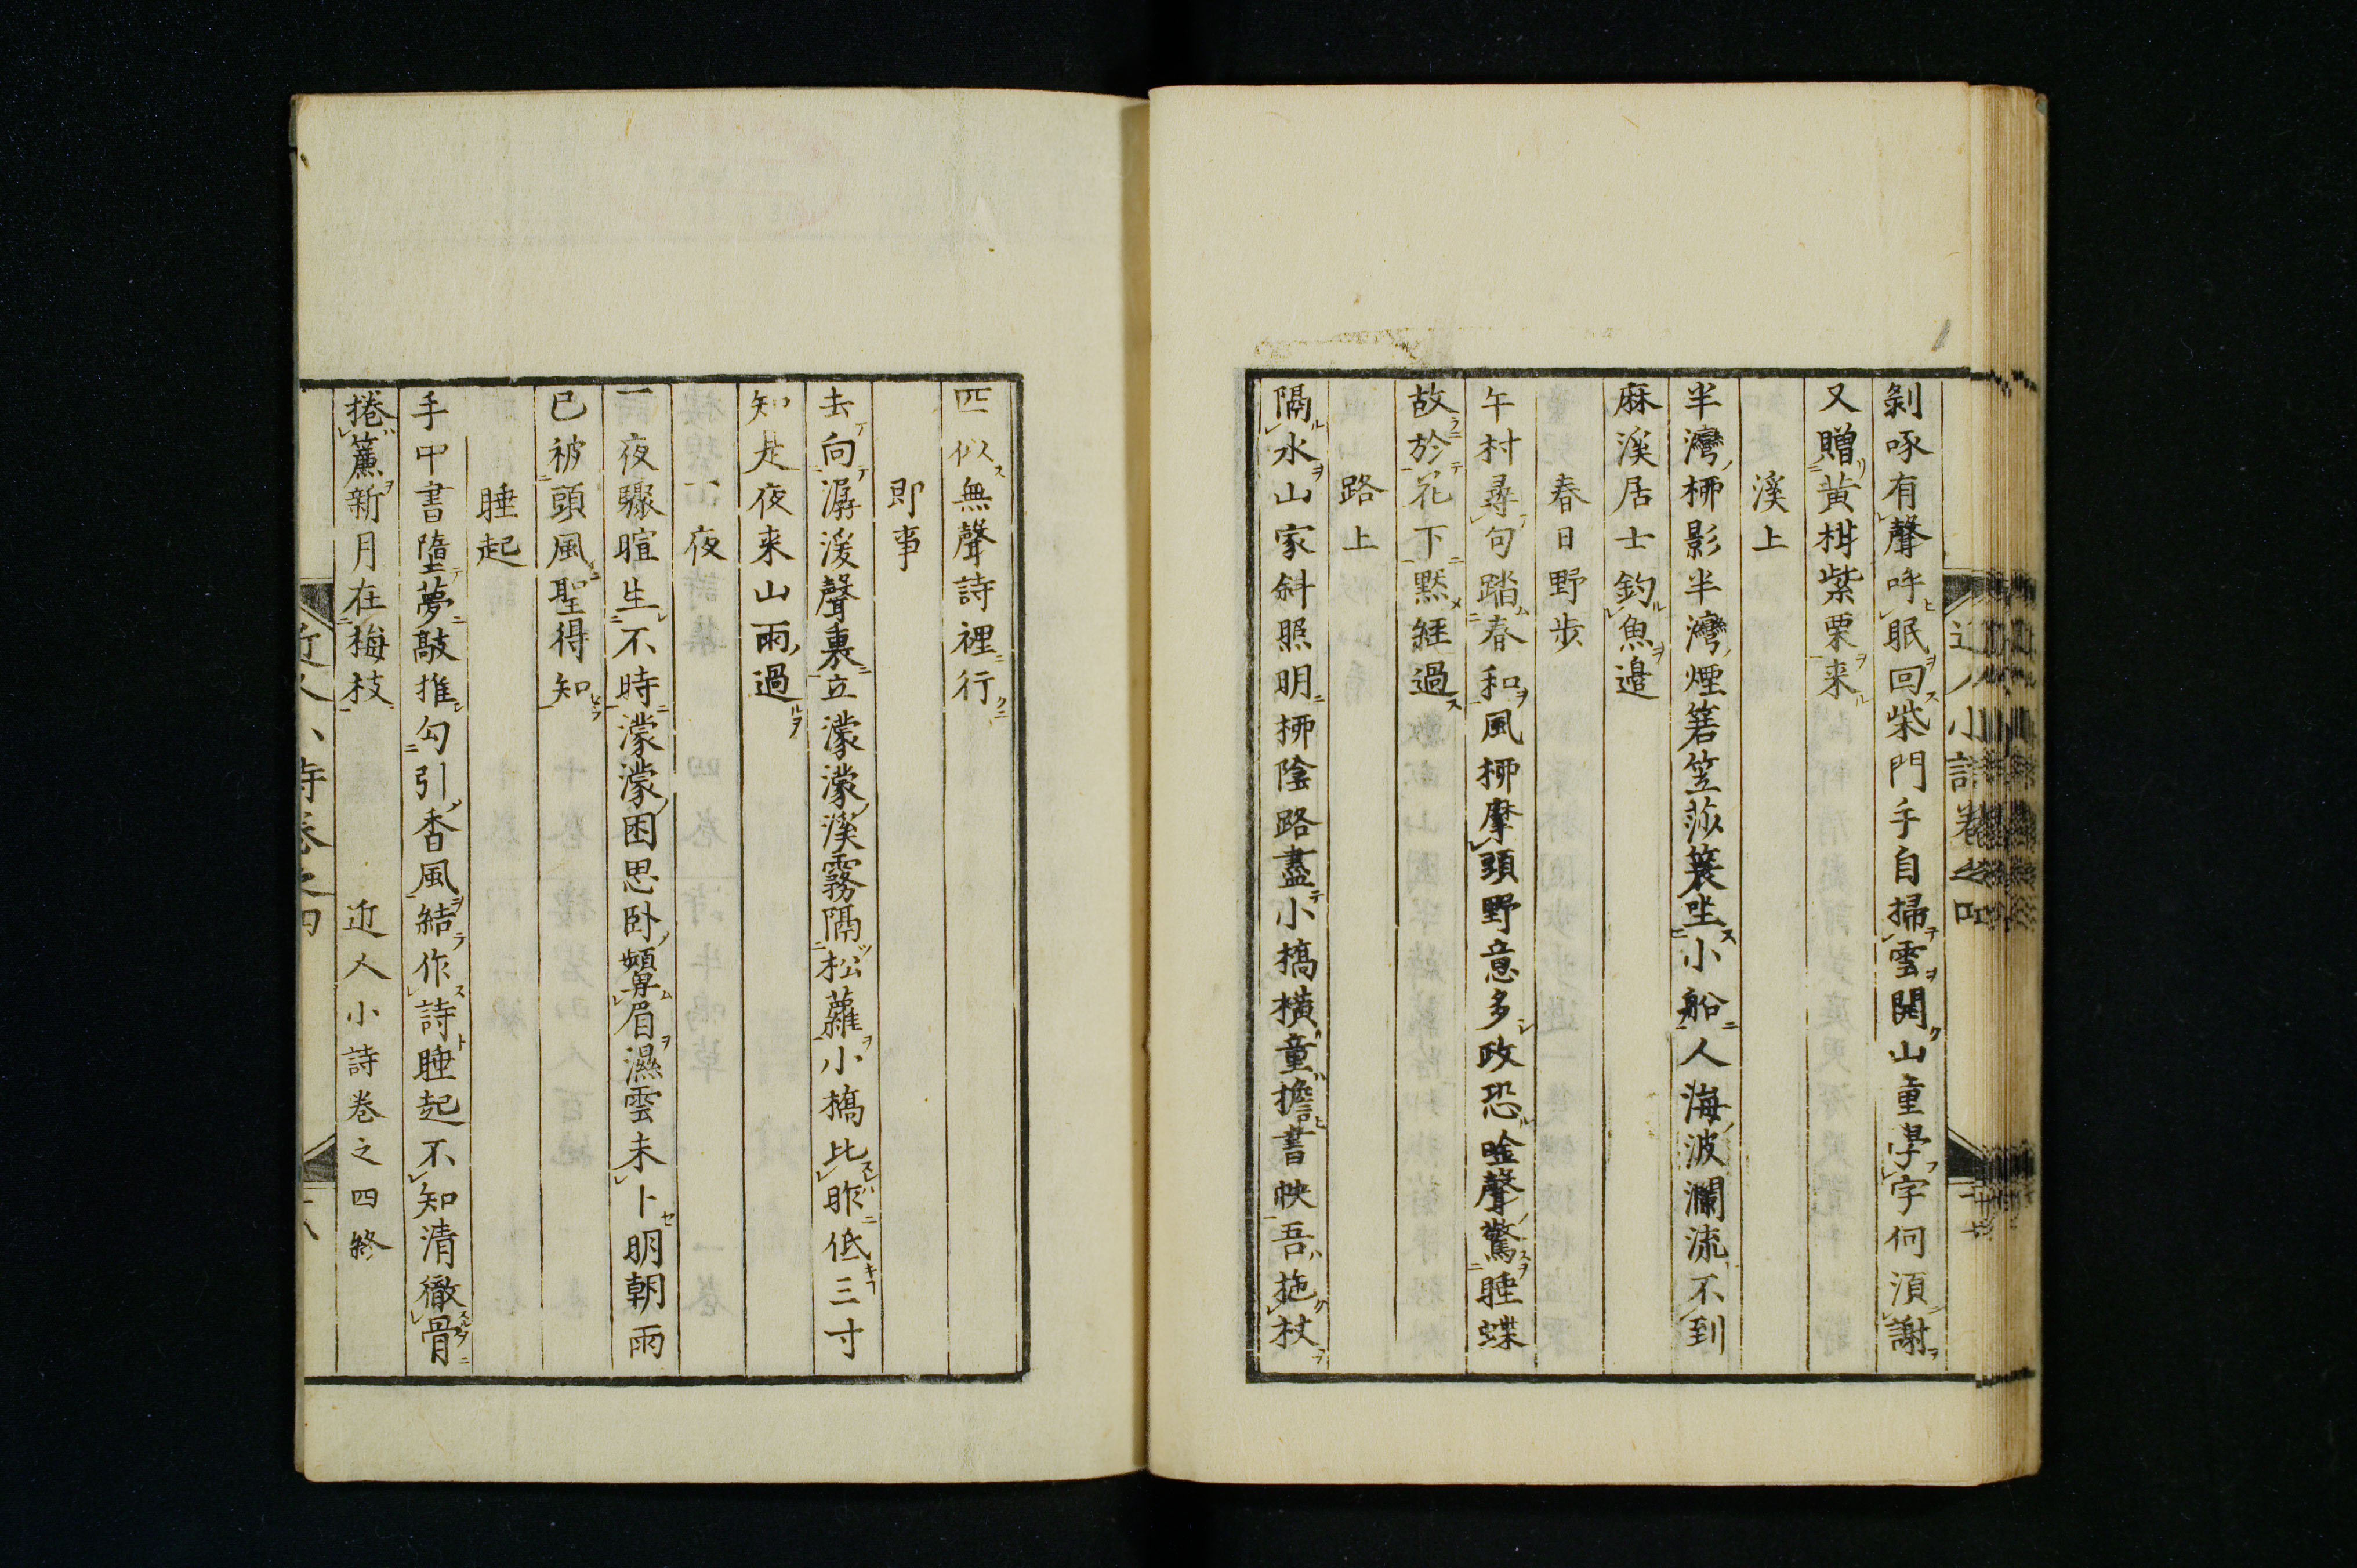 剝啄有聲呼眠回柴門手自掃雪開山童學字何須謝
又贈黃柑紫栗来
溪上
半灣柳影半灣煙箬笠莎簑坐小船人海波瀾流不到
麻溪居士釣魚邉
春日野歩
午村尋句踏春和風柳摩頭野意多政恐唫聲驚睡蝶
故於花下黙經過
路上
隔水山家斜照明柳陰路盡小橋橫童擔書帙吾拖杖
匹似無聲詩裡行
即事
去向潺湲聲裏立濛濛溪霧隔松蘿小橋比昨低三寸
知是夜来山雨過
夜
一夜驟暄生不時濛濛困思卧顰眉濕雲未卜明朝雨
已被頭風聖得知
睡起
手中書墮夢敲推勾引香風結作詩睡起不知清徹骨
捲簾新月在梅枝
近人小詩卷之四終
近人小詩卷之四